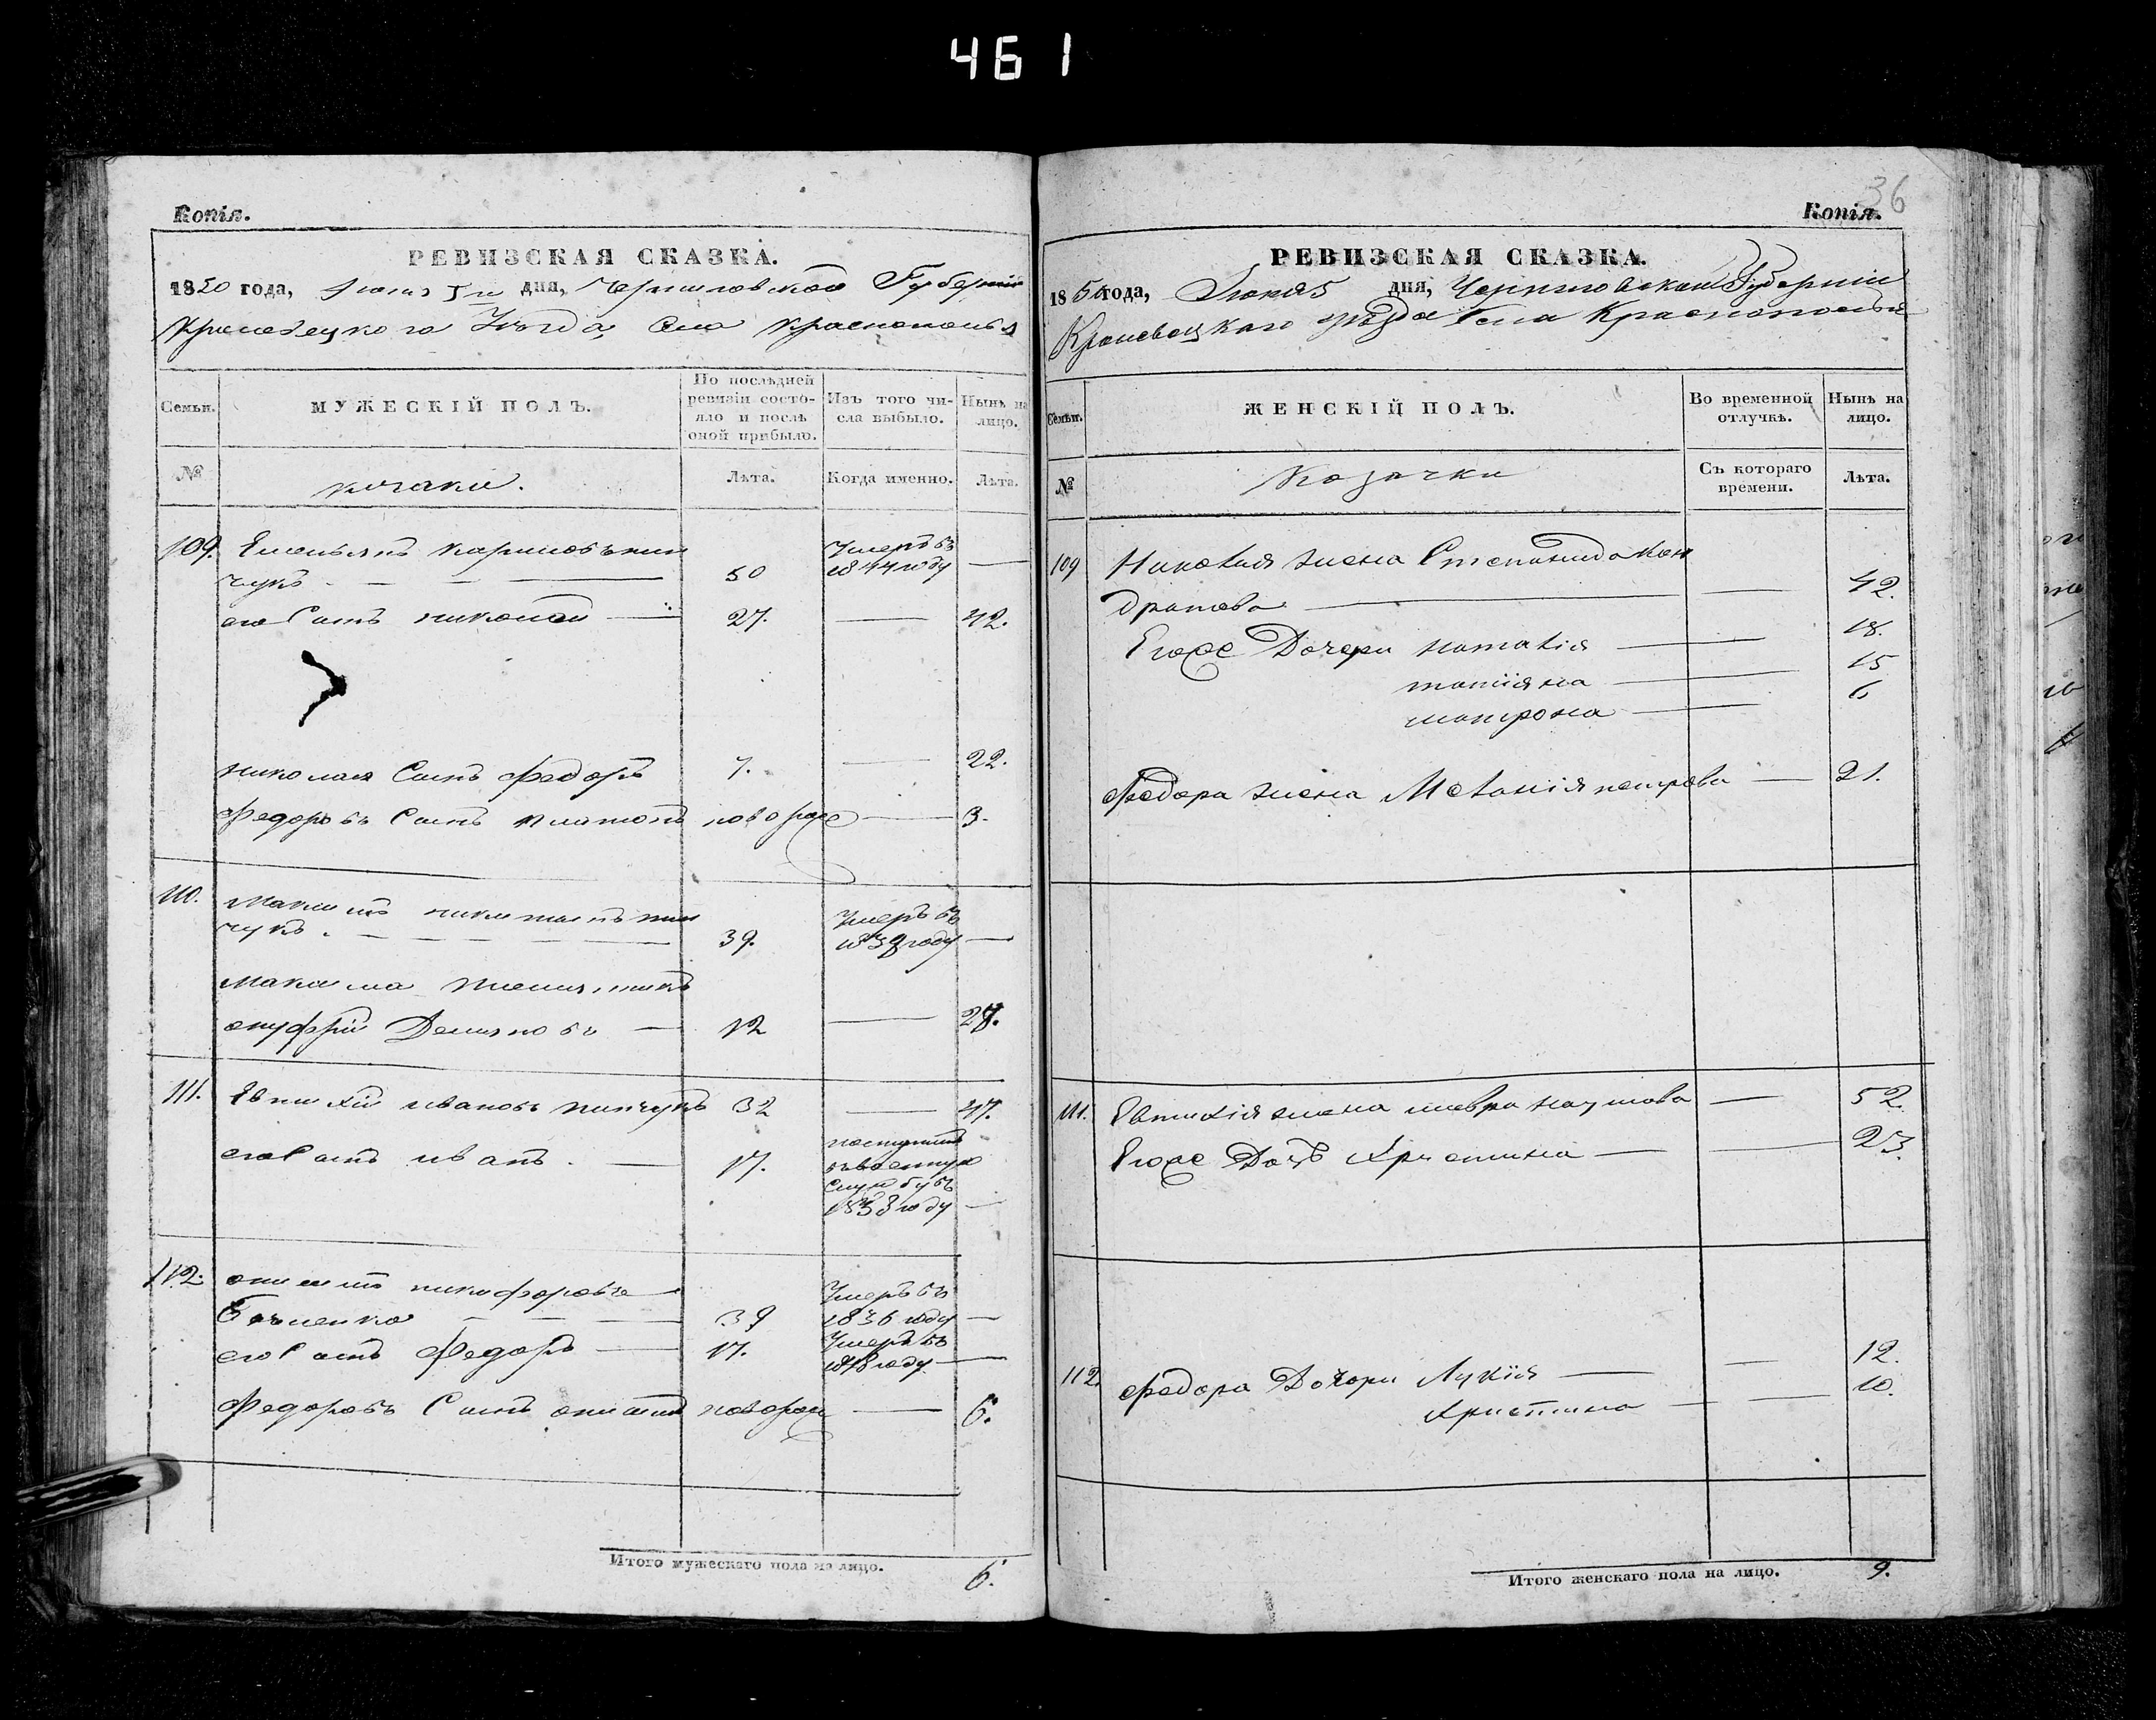 461
36
Копія.
РЕВИЗСКАЯ СКАЗКА.
1850 года, Іюня 5 дня, Черниговской Губерніи
Кролевецкого Уезда, Села Краснополья
Семьи.
МУЖЕСКІЙ ПОЛЪ.
По послѣдней ревизіи состояло и послѣ оной прибыло.
Изъ того числа выбыло.
Нынѣ на лицо.
№
козаки.
Лѣта.
Когда именно.
Лѣта.
109. Емельянъ
чукъ 50 Умеръ въ 1844 году —
его Сынъ николай 27. — 42.
николая Сынъ Федоръ 7. — 22.
Федоровъ Сынъ платонъ новорож — 3.
110. Максимъ никитинъ пин
чукъ. 39. Умеръ въ 1838 году —
Максима племянникъ
онуфрій Демяновъ — 12 — 27.
111. Евтихій ивановъ пинчукъ 32 — 47.
его Сынъ иванъ. — 17. поступилъ
въ военную
Службу въ
1838 году —
112. онисимъ никифоровъ
39 Умеръ въ 1836 году —
его Сынъ Федоръ — 17. Умеръ въ
1848 году —
Федоровъ Сынъ онисимъ новорож — 6.
Итого мужескаго пола на лицо. 6.
Копія.
РЕВИЗСКАЯ СКАЗКА.
1850 года, Іюня 5 дня, Черниговской Губерніи
Кролевецкаго уезда Села Краснополья
Семьи.
ЖЕНСКІЙ ПОЛЪ.
Во временной отлучкѣ.
Нынѣ на лицо.
№
Козачки
Съ котораго времени.
Лѣта.
109 Николая жена Степанида Кон
дратова — — 42.
Егоже Дочери наталія — 18.
татіяна — 15
матрона — 6
Федора жена Меланія петрова — 21.
111. Евтихія жена мавра наумова — 52.
Егоже Дочь Христина — — 23.
112. Федора Дочери Лукія — — 12.
Христина — — 10.
Итого женскаго пола на лицо. 9.